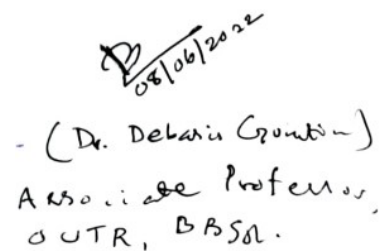 08/06/2022
(Dr. Debasis Gountia)
Associate Professor,
OUTR, BBSR.